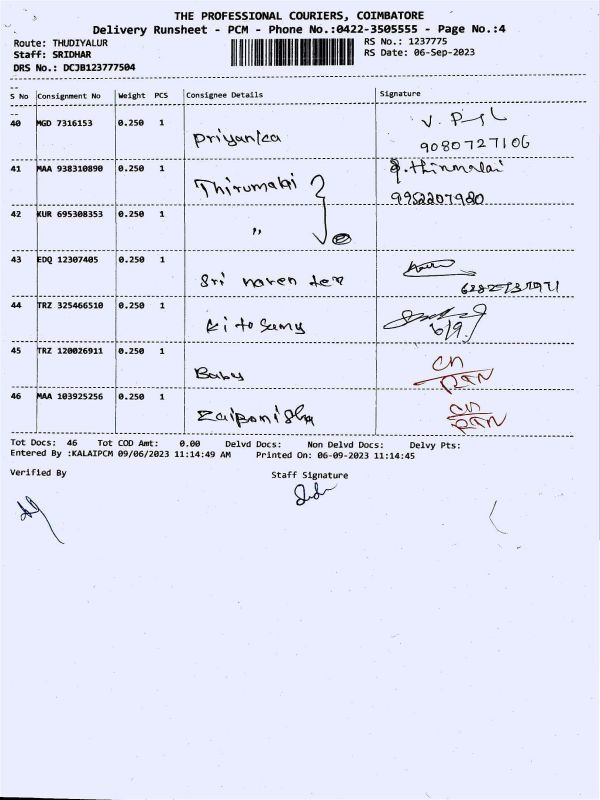 THE PROFESSIONAL COURIERS, COIMBATORE
Delivery Runsheet - PCM - Phone No.:0422-3505555 - Page No.:4
Route: THUDIYALUR RS No.: 1237775
Staff: SRIDHAR RS Date: 06-Sep-2023
DRS No.: DCJB123777504
S No Consignment No Weight PCS Consignee Details Signature
40 MGD 7316153 0.250 1 Priyanka
9080727106
41 MAA 938310890 0.250 1 Thirumalai
9952207920
42 KUR 695308353 0.250 1 "
43 EDQ 12307405 0.250 1 Sri naren
44 TRZ 325466510 0.250 1 6/9
45 TRZ 120026911 0.250 1 Baby CN
RTN
46 MAA 103925256 0.250 1 CN
RTN
Tot Docs: 46 Tot COD Amt: 0.00 Delvd Docs: Non Delvd Docs: Delvy Pts:
Entered By :KALAIPCM 09/06/2023 11:14:49 AM Printed On: 06-09-2023 11:14:45
Verified By Staff Signature